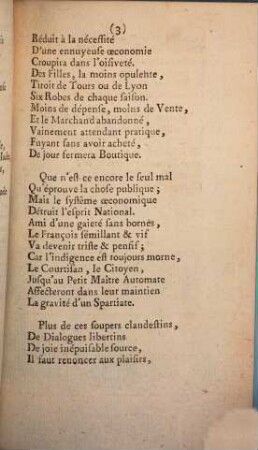 (3)
Réduit à la nécessité
D'une ennuyeuse œconomie
Croupira dans l'oisiveté.
Des Filles, la moins opulente,
Tiroit de Tours ou de Lyon
Six Robes de chaque saison.
Moins de dépense, moins de Vente,
Et le Marchand abandonné,
Vainement attendant pratique,
Fuyant sans avoir acheté,
De jour fermera Boutique.
Que n'est-ce encore le seul mal
Qu'éprouve la chose publique;
Mais le système œconomique
Détruit l'esprit National.
Ami d'une gaieté sans bornes,
Le François sémillant & vif
Va devenir triste & pensif;
Car l'indigence est toujours morne,
Le Courtisan, le Citoyen,
Jusqu'au Petit Maître Automate
Affecteront dans leur maintien
La gravité d'un Spartiate.
Plus de ces soupers clandestins,
De Dialogues libertins
De joie inépuisable source,
Il faut renoncer aux plaisirs,